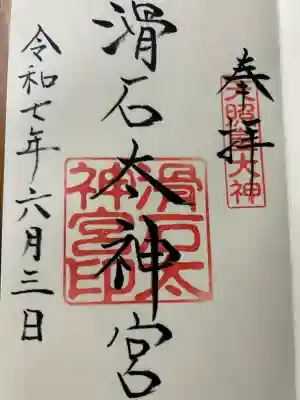 奉拝
天照皇大神
滑石太神宮
滑石太神宮印
令和七年六月三日